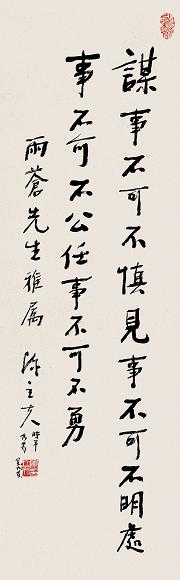 謀事不可不慎見事不可不明處
事不可不公任事不可不勇
雨蒼先生雅属
陈立夫時年